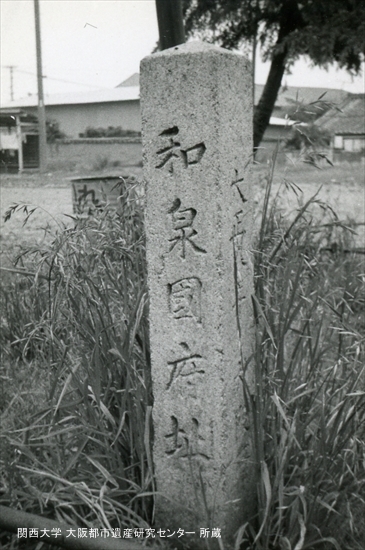 和泉國府址
大正
関西大学 大阪都市遺産研究センター 所蔵